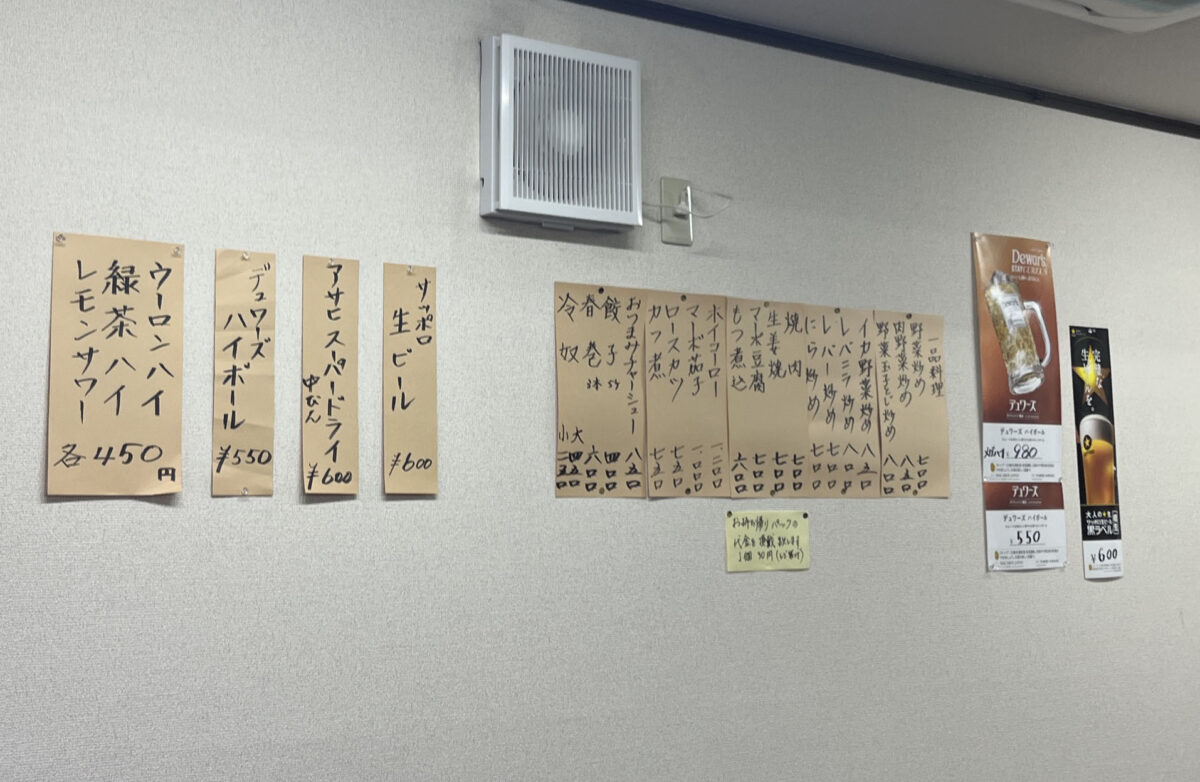 ウーロンハイ
緑茶ハイ
レモンサワー
各450円
デュワーズ
ハイボール
¥550
アサヒスーパードライ
中びん
¥600
サッポロ
生ビール
¥600
一品料理
野菜炒め 七〇〇
肉野菜炒め 八五〇
野菜玉子とじ炒め 八〇〇
イカ野菜炒め 八五〇
レバニラ炒め 八〇〇
レバー炒め 七〇〇
にら炒め 七〇〇
焼肉 七〇〇
生姜焼 七〇〇
マーボ豆腐 七〇〇
もつ煮込 六〇〇
ホイコーロー 一、二〇〇
マーボ茄子 一、〇〇〇
ロースカツ 七五〇
カツ煮 七五〇
おつまみチャーシュー 八五〇
餃子 5ケ 四〇〇
春巻 3本 六〇〇
冷奴 大 四五〇
小 二五〇
お持ち帰りパックの
代金を頂戴致します
1個 30円
Dewar's
デュワーズ
デュワーズ ハイボール
¥980
デュワーズ
デュワーズ ハイボール
¥550
大人の★生
サッポロ生ビール
黒ラベル
¥600